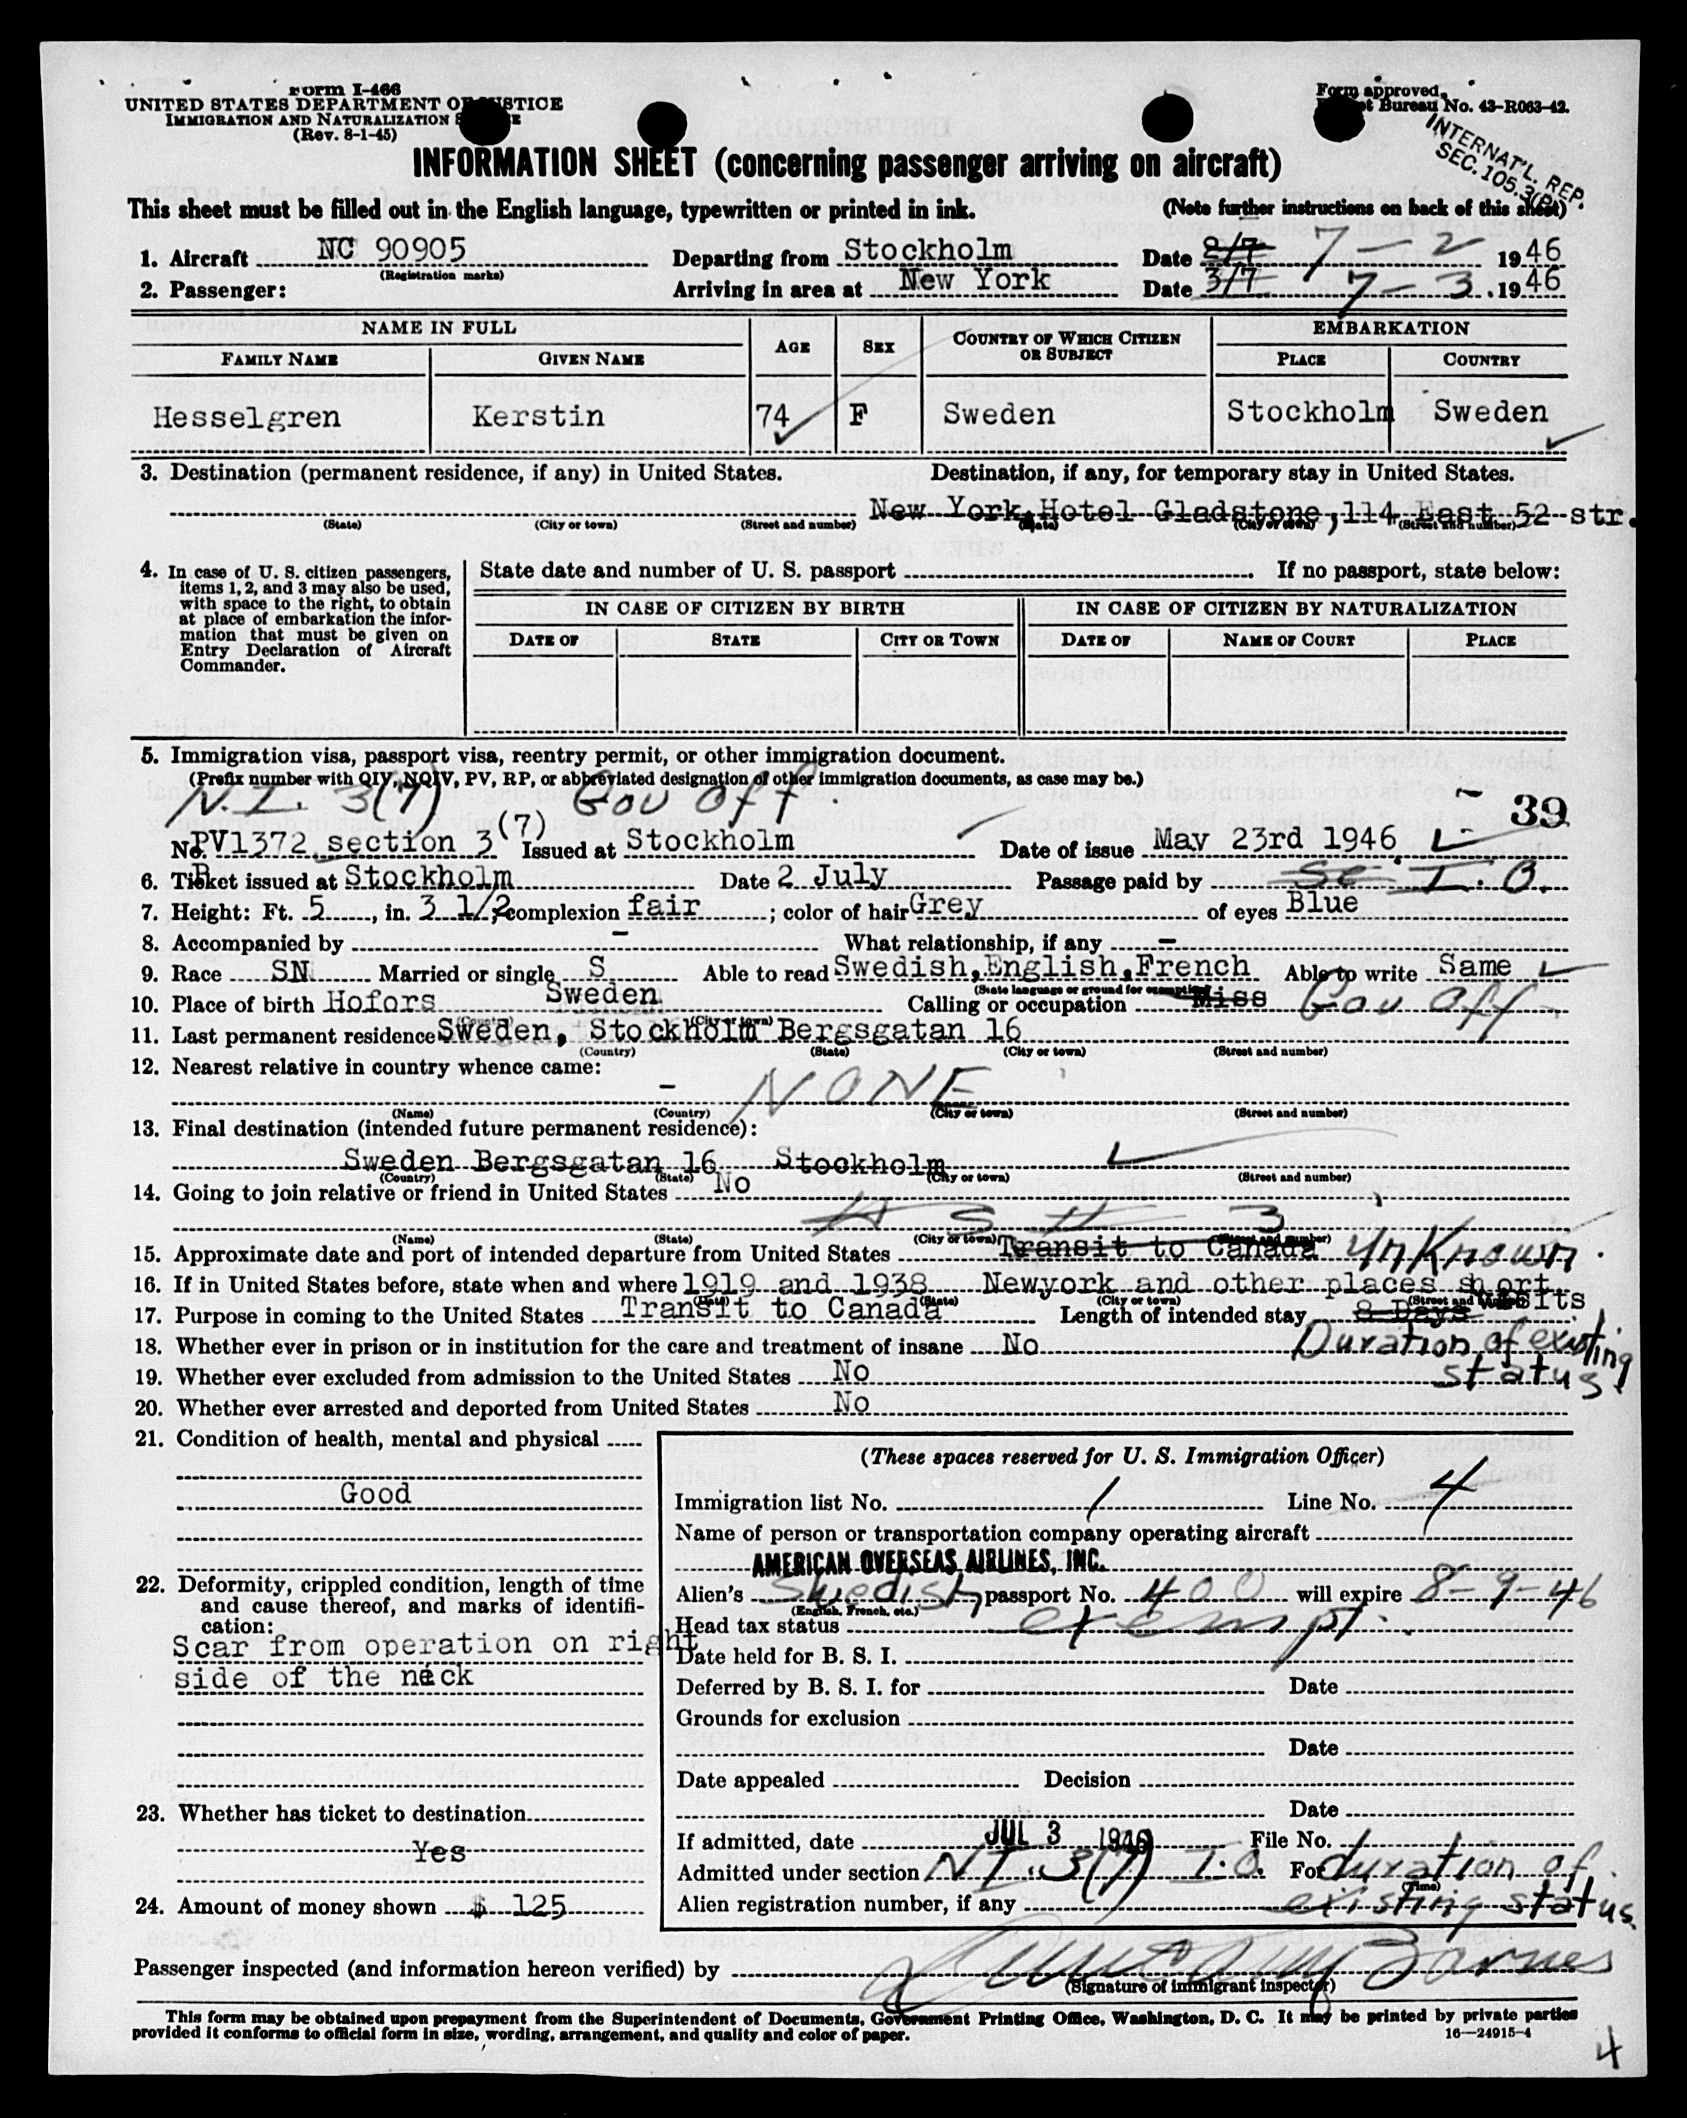 Form I-466
UNITED STATES DEPARTMENT OF JUSTICE
IMMIGRATION AND NATURALIZATION SERVICE
(Rev. 8-1-45)
Form approved.
Budget Bureau No. 43-R063-42.
INTERNAT'L. REP.
SEC. 105.3(P)
INFORMATION SHEET (concerning passenger arriving on aircraft)
This sheet must be filled out in the English language, typewritten or printed in ink. (Note further instructions on back of this sheet)
1. Aircraft NC 90905 Departing from Stockholm Date 2/7 7-2 1946
(Registration marks)
2. Passenger: Arriving in area at New York Date 3/7 7-3 1946
NAME IN FULL AGE SEX COUNTRY OF WHICH CITIZEN OR SUBJECT EMBARKATION
FAMILY NAME GIVEN NAME PLACE COUNTRY
Hesselgren Kerstin 74 F Sweden Stockholm Sweden
3. Destination (permanent residence, if any) in United States. Destination, if any, for temporary stay in United States.
New York, Hotel Gladstone, 114 East 52 str.
(State) (City or town) (Street and number) (State) (City or town) (Street and number)
4. In case of U. S. citizen passengers, items 1, 2, and 3 may also be used, with space to the right, to obtain at place of embarkation the information that must be given on Entry Declaration of Aircraft Commander.
State date and number of U. S. passport . If no passport, state below:
IN CASE OF CITIZEN BY BIRTH IN CASE OF CITIZEN BY NATURALIZATION
DATE OF STATE CITY OR TOWN DATE OF NAME OF COURT PLACE
5. Immigration visa, passport visa, reentry permit, or other immigration document.
(Prefix number with QIV, NQIV, PV, RP, or abbreviated designation of other immigration documents, as case may be.)
N.I. 3(7) Gov off. 39
No. PV1372 section 3(7) Issued at Stockholm Date of issue May 23rd 1946
6. Ticket issued at Stockholm Date 2 July Passage paid by Se I.O.
7. Height: Ft. 5, in. 3 1/2; complexion fair; color of hair Grey of eyes Blue
8. Accompanied by - What relationship, if any -
9. Race SN Married or single S Able to read Swedish, English, French Able to write Same
(State language or ground for exemption)
10. Place of birth Hofors Sweden Calling or occupation Miss Gov Off
(Country) (City or town)
11. Last permanent residence Sweden, Stockholm Bergsgatan 16
(Country) (State) (City or town) (Street and number)
12. Nearest relative in country whence came:
- NONE
(Name) (Country) (City or town) (Street and number)
13. Final destination (intended future permanent residence):
Sweden Bergsgatan 16 Stockholm
(Country) (State) (City or town) (Street and number)
14. Going to join relative or friend in United States No
AS # 3
(Name) (State) (City or town) (Street and number)
15. Approximate date and port of intended departure from United States Transit to Canada UnKnown.
16. If in United States before, state when and where 1919 and 1938 Newyork and other places short visits
(Date) (State) (City or town) (Street and number)
17. Purpose in coming to the United States Transit to Canada Length of intended stay 8 Days
Duration of existing status
18. Whether ever in prison or in institution for the care and treatment of insane No
19. Whether ever excluded from admission to the United States No
20. Whether ever arrested and deported from United States No
21. Condition of health, mental and physical
Good
22. Deformity, crippled condition, length of time and cause thereof, and marks of identification:
Scar from operation on right
side of the neck
23. Whether has ticket to destination
Yes
24. Amount of money shown $ 125
(These spaces reserved for U. S. Immigration Officer)
Immigration list No. 1 Line No. 4
Name of person or transportation company operating aircraft
AMERICAN OVERSEAS AIRLINES, INC.
Alien's Swedish passport No. 400 will expire 8-9-46
(English, French, etc.)
Head tax status exempt.
Date held for B. S. I.
Deferred by B. S. I. for Date
Grounds for exclusion
Date
Date appealed Decision
Date
If admitted, date JUL 3 1946 File No.
Admitted under section N.I. 3(7) I.O. For duration of
(Time)
Alien registration number, if any existing status
Passenger inspected (and information hereon verified) by Barnes
(Signature of immigrant inspector)
This form may be obtained upon prepayment from the Superintendent of Documents, Government Printing Office, Washington, D. C. It may be printed by private parties
provided it conforms to official form in size, wording, arrangement, and quality and color of paper.
16—24915-4
4